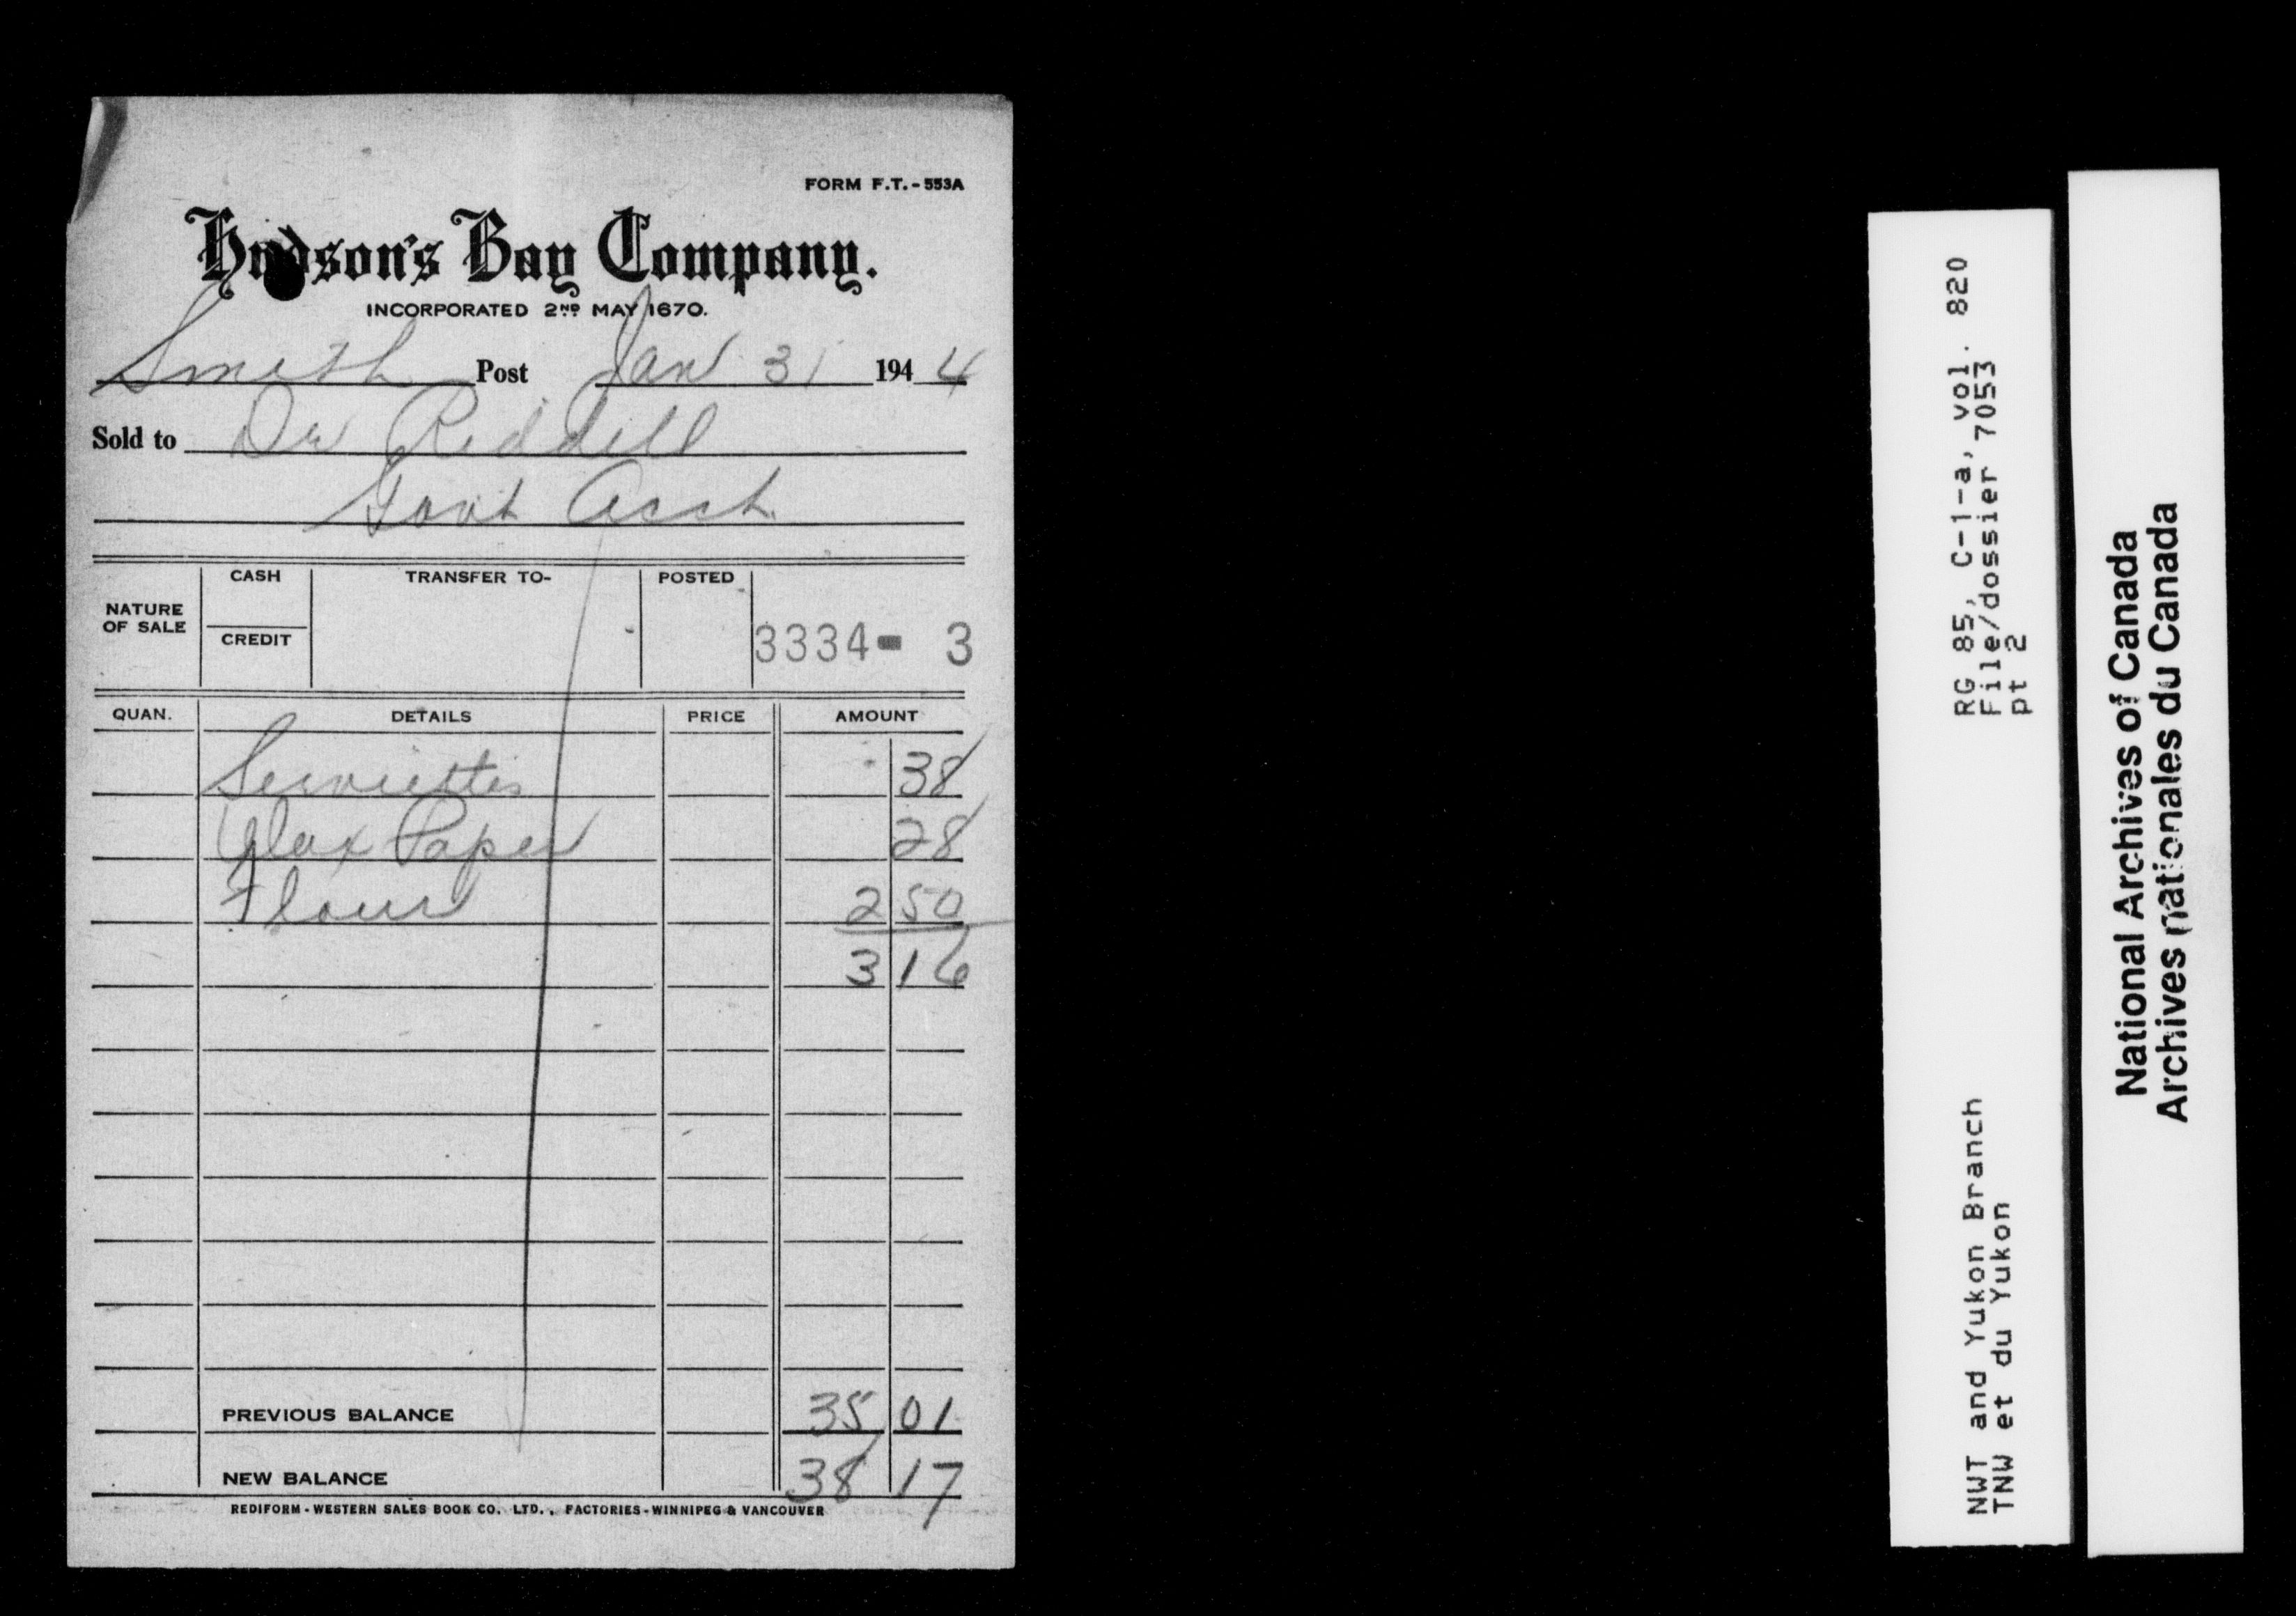 FORM F.T.-553A
Hudson's Bay Company.
INCORPORATED 2ND MAY 1670.
Smith Post Jan 31 1944
Sold to Dr Riddell
Govt Acct
NATURE OF SALE CASH CREDIT TRANSFER TO- POSTED 3334- 3
QUAN. DETAILS PRICE AMOUNT
Serviettes 38
Wax Paper 28
Flour 2 50
3 16
PREVIOUS BALANCE 35 01
NEW BALANCE 38 17
REDIFORM-WESTERN SALES BOOK CO. LTD., FACTORIES-WINNIPEG & VANCOUVER
RG 85, C-1-a, vol. 820
File/dossier 7053
pt 2
NWT and Yukon Branch
TNW et du Yukon
National Archives of Canada
Archives nationales du Canada